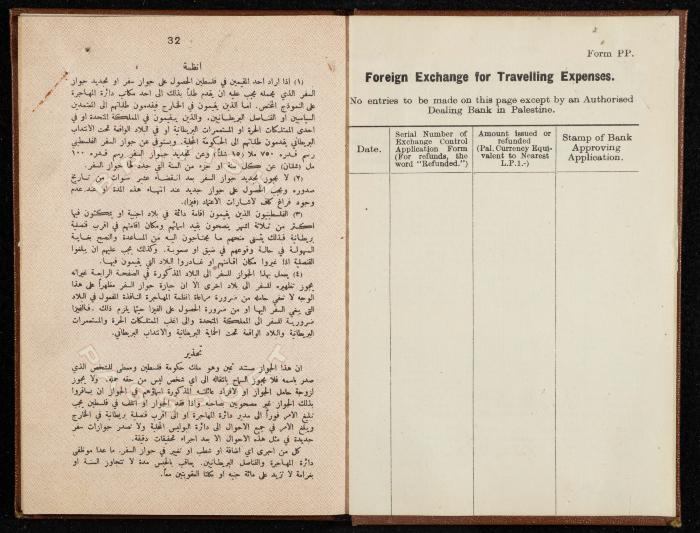 32
انظمة
(١) اذا اراد احد المقيمين في فلسطين الحصول على جواز سفر او تجديد جواز
السفر الذي يحمله يجب عليه ان يقدم طلباً بذلك الى احد مكاتب دائرة المهاجرة
على النموذج المختص. اما الذين يقيمون في الخارج فيقدمون طلباتهم الى المعتمدين
السياسيين او القناصل البريطانيين. والذين يقيمون في المملكة المتحدة او في
احدى الممتلكات الحرة او المستعمرات البريطانية او في البلاد الواقعة تحت الانتداب
البريطاني يقدمون طلباتهم الى الحكومة المحلية. ويستوفى عن جواز السفر الفلسطيني
رسم قدره ٧٥٠ ملا (١٥ شلناً) وعن تجديد جواز السفر رسم قدره ١٠٠
مل (شلنان) عن كل سنة او جزء من السنة التي جدد لها جواز السفر.
(٢) لا يجوز تجديد جواز السفر بعد انقضاء عشر سنوات من تاريخ
صدوره ويجب الحصول على جواز جديد عند انتهاء هذه المدة او عند عدم
وجود فراغ كاف لاشارات الاعتماد (فيزا).
(٣) الفلسطينيون الذين يقيمون اقامة دائمة في بلاد اجنبية او يمكثون فيها
اكثر من ثلاثة اشهر ينصحون بقيد اسمائهم ومكان اقامتهم في اقرب قنصلية
بريطانية فبذلك يتسنى منحهم ما يحتاجون اليه من المساعدة والنصح بغاية
السهولة في حالة وقوعهم في ضيق او صعوبة. وكذلك يجب عليهم ان يبلغوا
القنصلية اذا غيروا مكان اقامتهم او غادروا البلاد التي يقيمون فيها.
(٤) يعمل بهذا الجواز للسفر الى البلاد المذكورة في الصفحة الرابعة غير انه
يجوز تظهيره للسفر الى بلاد اخرى الا ان حيازة جواز السفر مظهراً على هذا
الوجه لا تعفي حامله من ضرورة مراعاة انظمة المهاجرة النافذة المفعول في البلاد
التي ينوي السفر اليها او من ضرورة الحصول على الفيزا حيثما يلزم ذلك. فالفيزا
ضرورية للسفر الى المملكة المتحدة والى اغلب الممتلكات الحرة والمستعمرات
البريطانية والبلاد الواقعة تحت الحماية البريطانية والانتداب البريطاني.
تحذير
ان هذا الجواز مستند ثمين وهو ملك حكومة فلسطين ومعطى للشخص الذي
صدر باسمه فلا يجوز السماح بانتقاله الى اي شخص ليس من حقه حمله. ولا يجوز
لزوجة حامل الجواز او لافراد عائلته المذكورة اسماؤهم في الجواز ان يسافروا
بذلك الجواز غير مصحوبين بصاحبه واذا فقد الجواز او اتلف في فلسطين يجب
تبليغ الامر فوراً الى مدير دائرة المهاجرة او الى اقرب قنصلية بريطانية في الخارج
ويبلغ الامر في جميع الاحوال الى دائرة البوليس المحلية ولا تصدر جوازات سفر
جديدة في مثل هذه الاحوال الا بعد اجراء تحقيقات دقيقة.
كل من اجرى اي اضافة او شطب او تغيير في جواز السفر. ما عدا موظفي
دائرة المهاجرة والقناصل البريطانيين. يعاقب بالحبس مدة لا تتجاوز السنة او
بغرامة لا تزيد على مائة جنيه او بكلتا العقوبتين معاً.
Form PP.
Foreign Exchange for Travelling Expenses.
No entries to be made on this page except by an Authorised
Dealing Bank in Palestine.
Date.
Serial Number of
Exchange Control
Application Form
(For refunds, the
word "Refunded.")
Amount issued or
refunded
(Pal. Currency Equi-
valent to Nearest
L.P.1.-)
Stamp of Bank
Approving
Application.